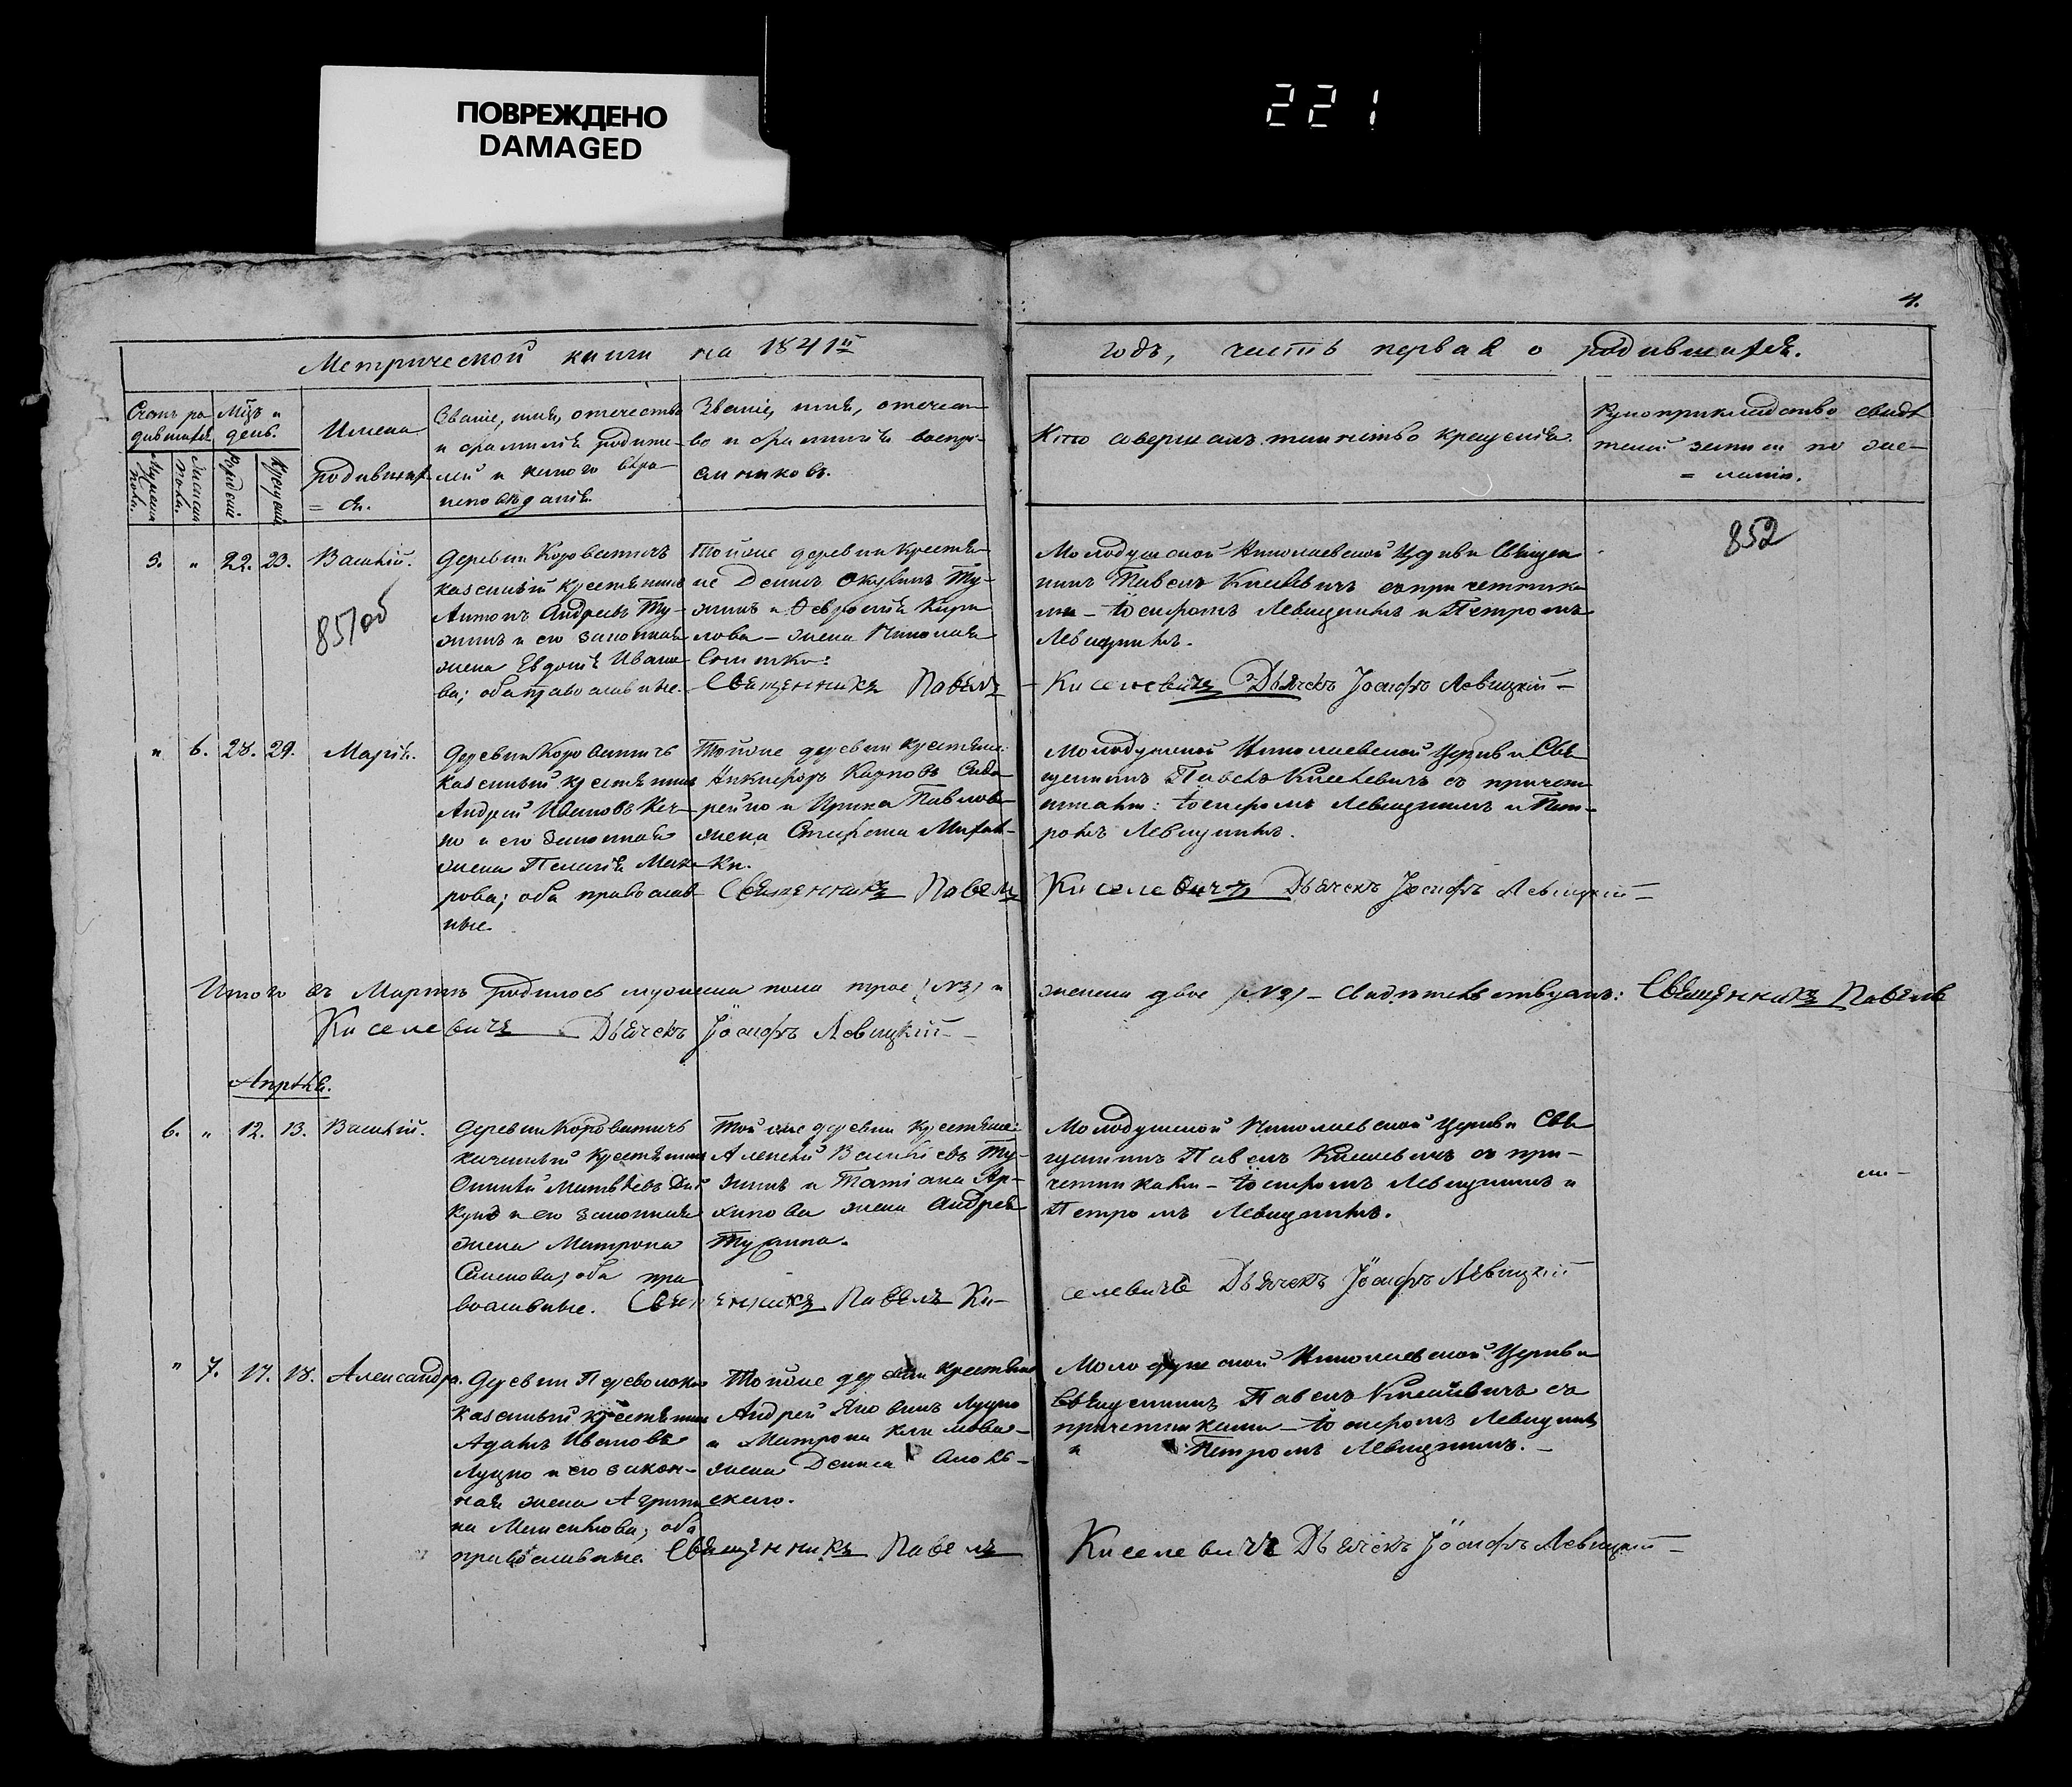 ПОВРЕЖДЕНО
DAMAGED
221
4.
Метрической книги на 1841й
годъ, часть первая о родившихся.
Счетъ ро
дившихся
Мужеска
пола.
Женска
пола.
Мцъ и
день.
Рожденіе
Крещеніе
Имена
родивших
= ся.
Званіе, имя, отечество
и фамилія родите-
лей и какого вѣро
исповѣданія.
Званіе, имя, отечест
во и фамилія воспрі-
емниковъ.
Кто совершалъ таинство крещенія.
Рукоприкладство свидѣ
телей записи по же-
= ланію.
5. " 22. 23. Василій.
851об
деревни Короватичъ
казенный крестьянинъ
Антонъ Андреевъ Ту-
жикъ и его законная
жена Евдокія Ивано
ва; оба православные.
Той же деревни крестья
не Денисъ Ту-
жикъ и Февронія Кири
лова - жена Николая
Священникъ Павелъ
Молодушской Николаевской Церкви Священ
никъ Павелъ Киселевичъ съ причетника
ми - Іосифомъ Левицкимъ и Петромъ
Левицкимъ.
Киселевичъ Дьячекъ Іосифъ Левицкій -
852
" 6. 28. 29. Марія.
Деревни Короватичъ
казенный крестьянинъ
Андрей Ивановъ
и его законная
жена Пелагія Мака
рова; оба православ
ные.
Той же деревни крестьяне:
Никифоръ Карповъ Сидо
рейко и Ирина Павлова
жена Стефана
Священникъ Павелъ
Молодушской Николаевской Церкви Свя
щенникъ Павелъ Киселевичъ съ причет
никами: Іосифомъ Левицкимъ и Пет-
ромъ Левицкимъ.
Киселевичъ Дьячекъ Іосифъ Левицкій -
Итого въ Мартѣ родилось мужеска пола трое (№3) и
женска двое (№2) - Свидѣтельствуемъ: Священникъ Павелъ
Киселевичъ Дьячекъ Іосифъ Левицкій -
Апрѣль.
6. " 12. 13. Василій.
деревни Короватичъ
казенный крестьянинъ
Матвѣевъ
и его законная
жена Матрона
Семенова; оба пра
вославные.
Той же деревни крестьяне:
Алексѣй Васильевъ Ту-
жикъ и Татіана Ар-
хипова жена Андрея
Тужика.
Священникъ Павелъ Ки-
Молодушской Николаевской Церкви Свя
щенникъ Павелъ Киселевичъ съ при-
четниками - Іосифомъ Левицкимъ и
Петромъ Левицкимъ.
селевичъ Дьячекъ Іосифъ Левицкій
" 7. 17. 18. Александра.
Деревни Переволоки
казенный крестьянинъ
Адамъ Ивановъ
Луцко и его закон-
ная жена Агрипи
на; оба
православные.
Той же деревни крестьяне
Андрей Луцко
и Матрона
жена Дениса
скаго.
Священникъ Павелъ
Молодушской Николаевской Церкви
Священникъ Павелъ Киселевичъ съ
причетниками - Іосифомъ Левицкимъ
и Петромъ Левицкимъ. -
Киселевичъ Дьячекъ Іосифъ Левицкій -